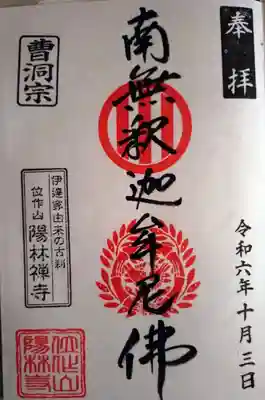 奉拝
令和六年十月三日
南無釈迦牟尼佛
曹洞宗
伊達家由来の古刹
位作山 陽林禅寺
位作山
陽林寺